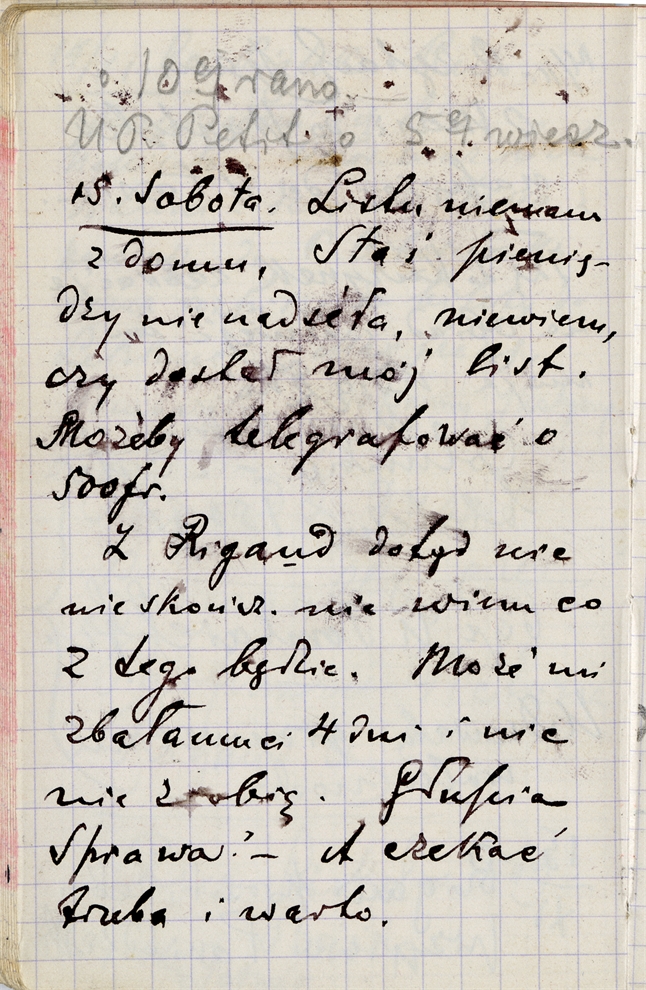 o 10 g rano
U P. Petit. o 5 g wiecz.
15. Sobota. Listu niemam
z domu, Staś pienię-
dzy nie nadséła, niewiem,
czy dostał mój list.
Możeby telegrafować o
500 fr.
Z Rigaud dotąd nic
nieskończ. nie wiem co
z tego będzie. Może mi
zbałamuci 4 dni i nic
nie zrobię. Głupia
sprawa! – A czekać
trzeba i warto.